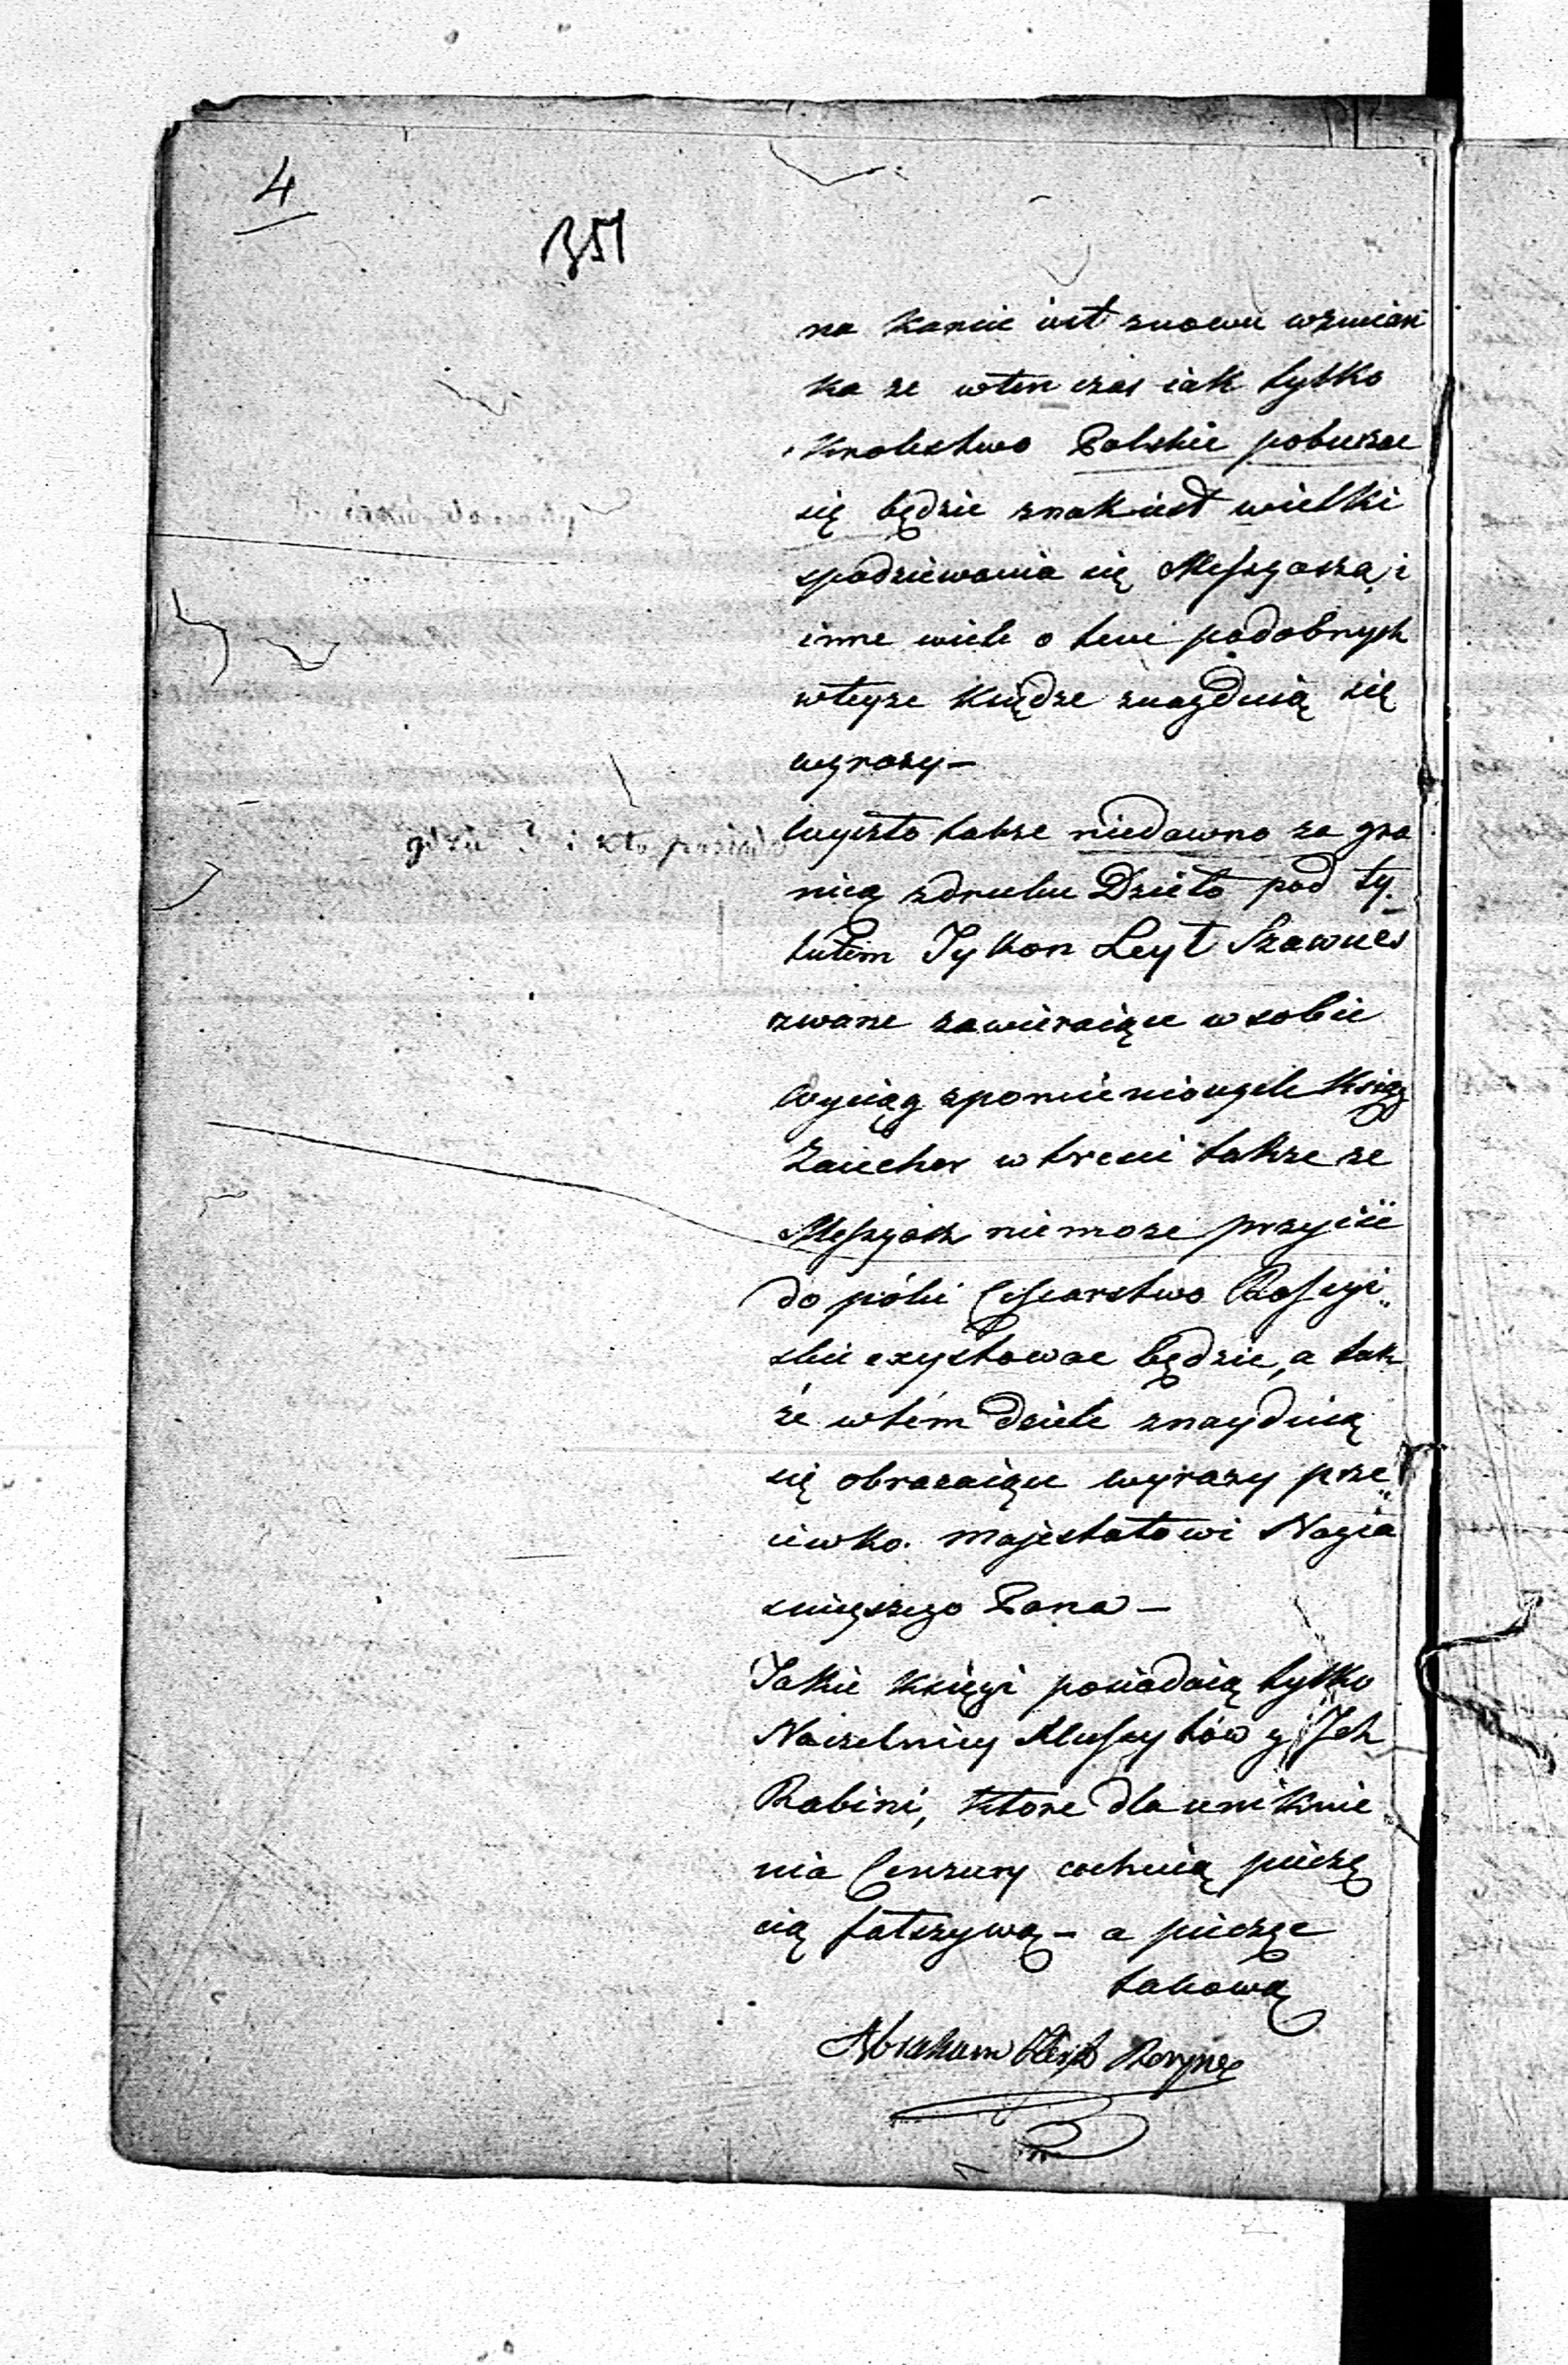 4
351
na karcie iest znowu wzmian
ka ze wten czas iak tylko
Krolestwo Polskie poburzac
się będzie znak iest wielki
spodziewania się Meſzyasza, i
inne wiele o tem podobnych
wteyze księdze znayduią się
wyrazy –
gdzie ? i kto posiada
wyszło takze niedawno za gra
nicą zdruku Dzieło pod ty-
tułem Tykon Leyl Szawues
zwane zawieraiące w sobie
Wyciąg zpomienionych Ksiąg
w tresci takze ze
Meſzyasz niemoze przyiść
do póki Ceſsarstwo Roſsyi„
skie exystowac będzie, a tak
że wtém dziele znayduią
się obrazaiące wyrazy prze„
ciwko majestatowi Nayia
snieyszego Pana –
Takie księgi posiadaią tylko
Naczelnicy Huſsytów y Ich
Rabini, ktore dla uniknie
nia Cenzury cechuią pieczę
cią fałszywą – a pieczęc
takową
Abraham